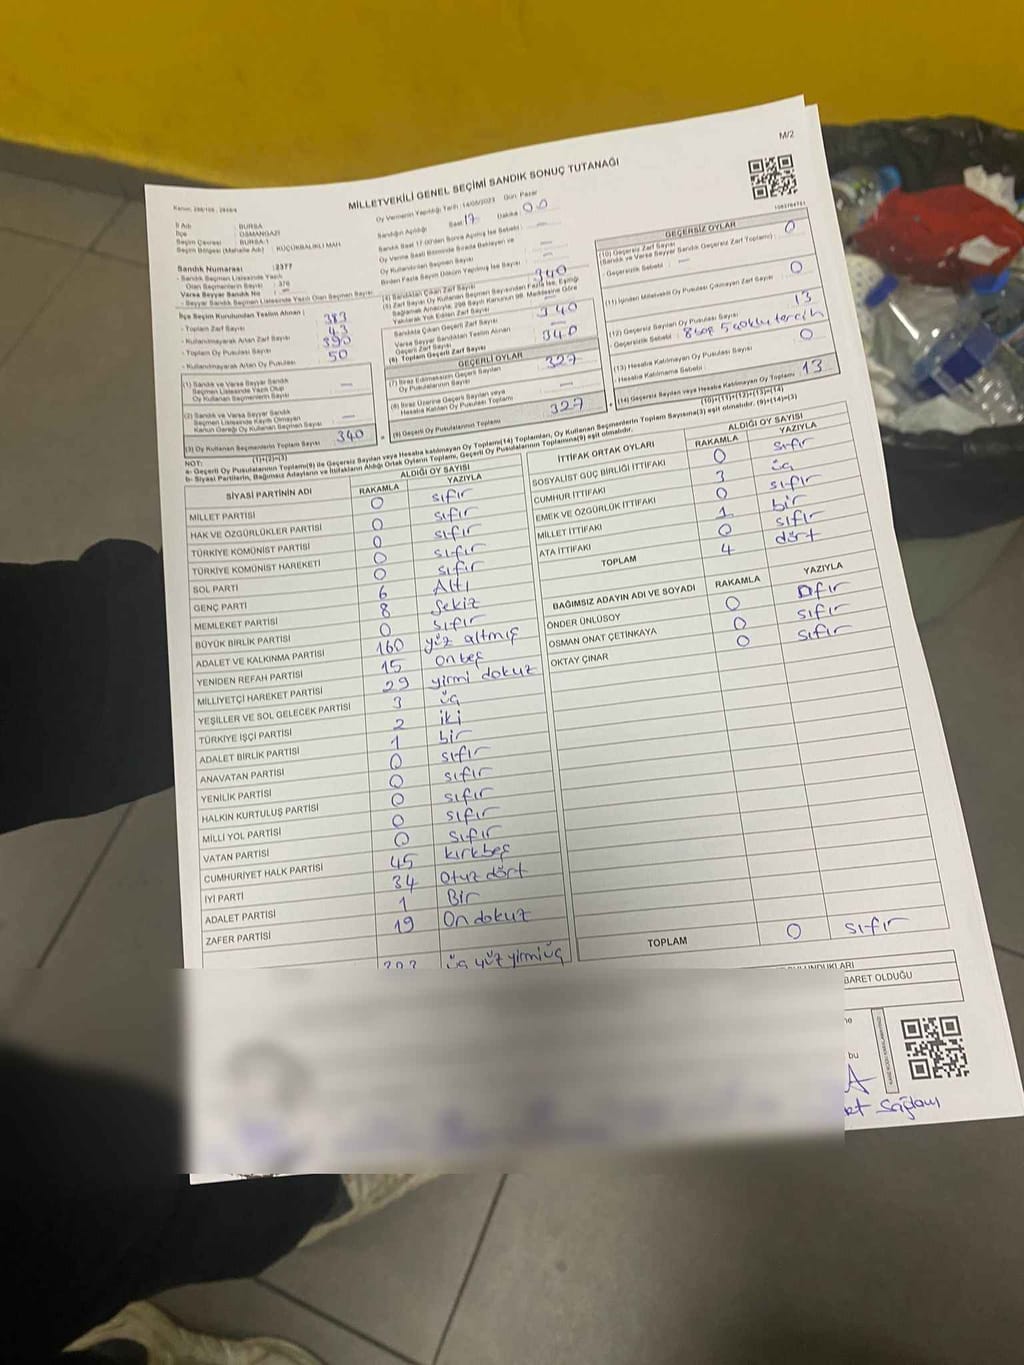 M/2
MİLLETVEKİLİ GENEL SEÇİMİ SANDIK SONUÇ TUTANAĞI
Oy Vermenin Yapıldığı Tarih : 14/05/2023 Gün: Pazar
İl Adı : BURSA
İlçe : OSMANGAZİ
Seçim Çevresi : BURSA-1
Seçim Bölgesi (Mahalle Adı) : KÜÇÜKBALIKLI MAH
Sandık Numarası : 2377
- Sandık Seçmen Listesinde Yazılı
Olan Seçmenlerin Sayısı : 376
Varsa Seyyar Sandık No : —
- Seyyar Sandık Seçmen Listesinde Yazılı Olan Seçmen Sayısı:
İlçe Seçim Kurulundan Teslim Alınan :
- Toplam Zarf Sayısı 383
- Kullanılmayarak Artan Zarf Sayısı 43
- Toplam Oy Pusulası Sayısı 390
- Kullanılmayarak Artan Oy Pusulası 50
(1) Sandık ve Varsa Seyyar Sandık
Seçmen Listesinde Yazılı Olup
Oy Kullanan Seçmenlerin Sayısı —
(2) Sandık ve Varsa Seyyar Sandık
Seçmen Listesinde Kaydı Olmayan
Kanun Gereği Oy Kullanan Seçmen Sayısı —
(3) Oy Kullanan Seçmenlerin Toplam Sayısı 340
(1)+(2)=(3)
Sandığın Açıldığı Saat 17 Dakika 00
Sandık Saat 17.00'den Sonra Açılmış İse Sebebi : —
Oy Verme Saati Bitiminde Sırada Bekleyen ve
Oy Kullandırılan Seçmen Sayısı —
Birden Fazla Sayım Döküm Yapılmış İse Sayısı —
(4) Sandıktan Çıkan Zarf Sayısı 340
(5) Zarf Sayısı Oy Kullanan Seçmen Sayısından Fazla İse, Eşitliği
Sağlamak Amacıyla, 298 Sayılı Kanunun 98. Maddesine Göre
Yakılarak Yok Edilen Zarf Sayısı —
Sandıkta Çıkan Geçerli Zarf Sayısı 340
Varsa Seyyar Sandıktan Teslim Alınan
Geçerli Zarf Sayısı —
(6) Toplam Geçerli Zarf Sayısı 340
GEÇERLİ OYLAR
(7) İtiraz Edilmeksizin Geçerli Sayılan
Oy Pusulalarının Sayısı 327
(8) İtiraz Üzerine Geçerli Sayılan veya
Hesaba Katılan Oy Pusulası Toplamı —
(9) Geçerli Oy Pusulalarının Toplamı 327
GEÇERSİZ OYLAR
(10) Geçersiz Zarf Sayısı 0
(Sandık ve Varsa Seyyar Sandık Geçersiz Zarf Toplamı) :
- Geçersizlik Sebebi : —
(11) İçinden Milletvekili Oy Pusulası Çıkmayan Zarf Sayısı 0
(12) Geçersiz Sayılan Oy Pusulası Sayısı 13
Geçersizlik Sebebi : 8 boş 5 çoklu tercih
(13) Hesaba Katılmayan Oy Pusulası Sayısı 0
- Hesaba Katılmama Sebebi :
(14) Geçersiz Sayılan veya Hesaba Katılmayan Oy Pusulası Toplamı 13
(10)+(11)+(12)+(13)=(14)
NOT:
a- Geçerli Oy Pusulalarının Toplamı(9) ile Geçersiz Sayılan veya Hesaba katılmayan Oy Toplamı(14) Toplamları, Oy Kullanan Seçmenlerin Toplam Sayısına(3) eşit olmalıdır. (9)+(14)=(3)
b- Siyasi Partilerin, Bağımsız Adayların ve İttifakların Aldığı Ortak Oyların Toplamı, Geçerli Oy Pusulalarının Toplamına(9) eşit olmalıdır.
SİYASİ PARTİNİN ADI ALDIĞI OY SAYISI
RAKAMLA YAZIYLA
MİLLET PARTİSİ 0 sıfır
HAK VE ÖZGÜRLÜKLER PARTİSİ 0 sıfır
TÜRKİYE KOMÜNİST PARTİSİ 0 sıfır
TÜRKİYE KOMÜNİST HAREKETİ 0 sıfır
SOL PARTİ 0 sıfır
GENÇ PARTİ 6 Altı
MEMLEKET PARTİSİ 8 Sekiz
BÜYÜK BİRLİK PARTİSİ 0 sıfır
ADALET VE KALKINMA PARTİSİ 160 yüz altmış
YENİDEN REFAH PARTİSİ 15 on beş
MİLLİYETÇİ HAREKET PARTİSİ 29 yirmi dokuz
YEŞİLLER VE SOL GELECEK PARTİSİ 3 üç
TÜRKİYE İŞÇİ PARTİSİ 2 iki
ADALET BİRLİK PARTİSİ 1 bir
ANAVATAN PARTİSİ 0 sıfır
YENİLİK PARTİSİ 0 sıfır
HALKIN KURTULUŞ PARTİSİ 0 sıfır
MİLLİ YOL PARTİSİ 0 sıfır
VATAN PARTİSİ 0 sıfır
CUMHURİYET HALK PARTİSİ 45 kırkbeş
İYİ PARTİ 34 Otuz dört
ADALET PARTİSİ 1 Bir
ZAFER PARTİSİ 19 On dokuz
üç yüz yirmi üç
İTTİFAK ORTAK OYLARI ALDIĞI OY SAYISI
RAKAMLA YAZIYLA
SOSYALİST GÜÇ BİRLİĞİ İTTİFAKI 0 sıfır
CUMHUR İTTİFAKI 3 üç
EMEK VE ÖZGÜRLÜK İTTİFAKI 0 sıfır
MİLLET İTTİFAKI 1 bir
ATA İTTİFAKI 0 sıfır
TOPLAM 4 dört
BAĞIMSIZ ADAYIN ADI VE SOYADI RAKAMLA YAZIYLA
ÖNDER ÜNLÜSOY 0 sıfır
OSMAN ONAT ÇETİNKAYA 0 sıfır
OKTAY ÇINAR 0 sıfır
TOPLAM 0 sıfır
BARET OLDUĞU
bu
et Sağlam